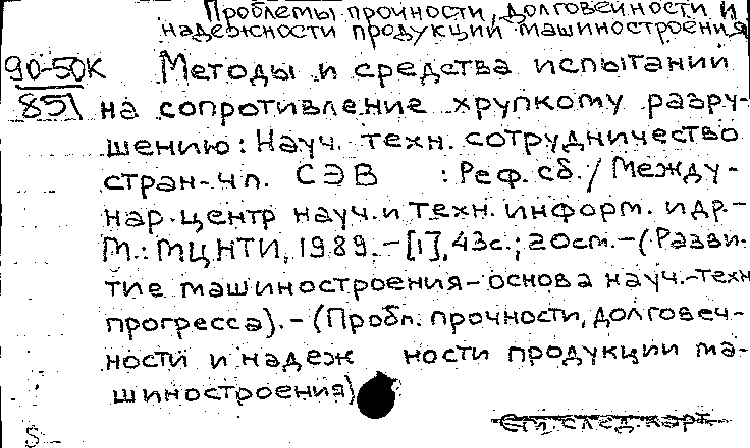 Проблемы прочности, долговечности и
надежности продукции машиностроения
90-50К Методы и средства испытаний
851 на сопротивление хрупкому разру-
шению: Науч. техн. сотрудничество
стран-чл. СЭВ : Реф. сб. / Между-
нар. центр науч. и техн. информ. и др. –
М.: МЦНТИ, 1989. – [1], 43с.; 20см. – (Разви-
тие машиностроения - основа науч.-техн
прогресса). – (Пробл. прочности, долговеч-
ности и надеж ности продукции ма-
шиностроения)
См. след. карт.